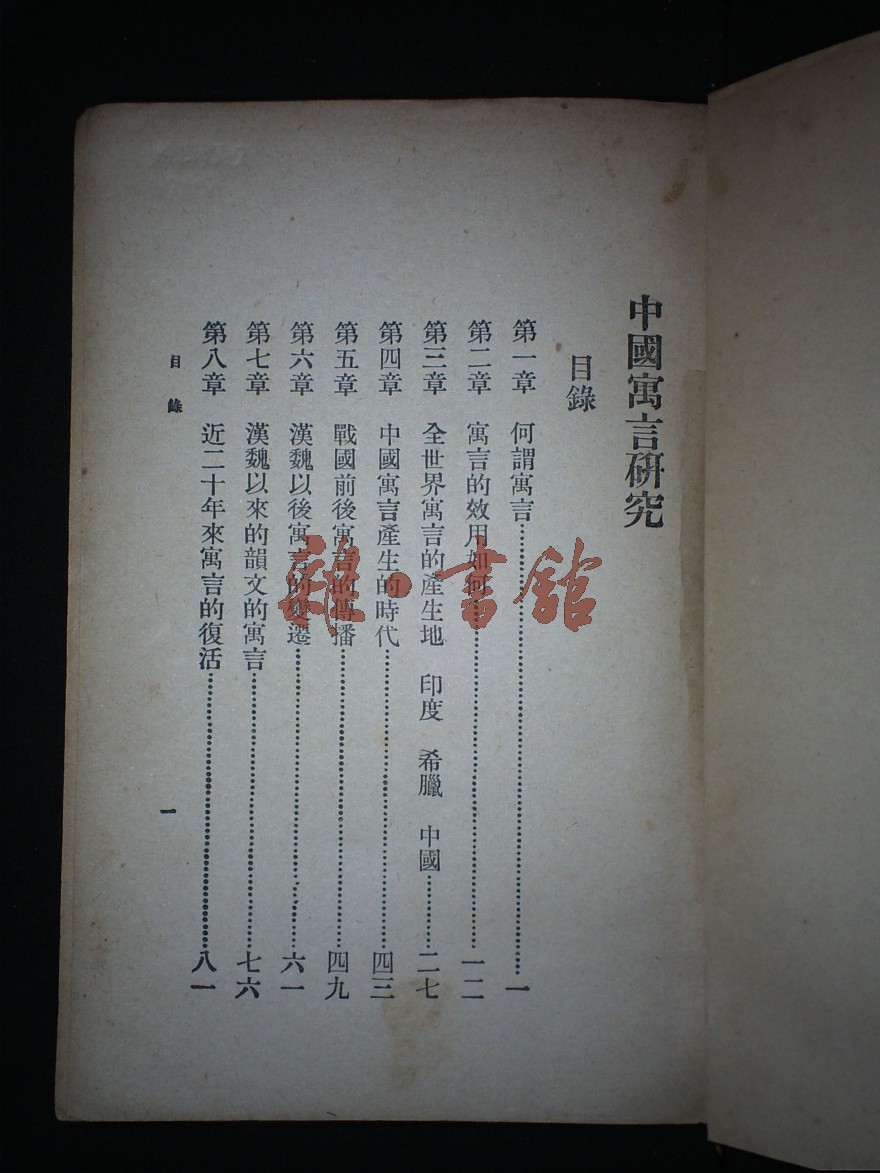 中國寓言硏究
目錄
第一章 何謂寓言……一
第二章 寓言的效用如何……一二
第三章 全世界寓言的產生地 印度 希臘 中國……二七
第四章 中國寓言產生的時代……四三
第五章 戰國前後寓言的傳播……四九
第六章 漢魏以後寓言的變遷……六一
第七章 漢魏以來的韻文的寓言……七六
第八章 近二十年來寓言的復活……八一
目錄
一
雜·書館